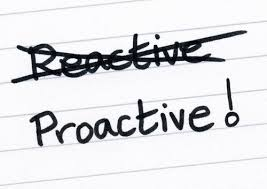 Reactive
Proactive!